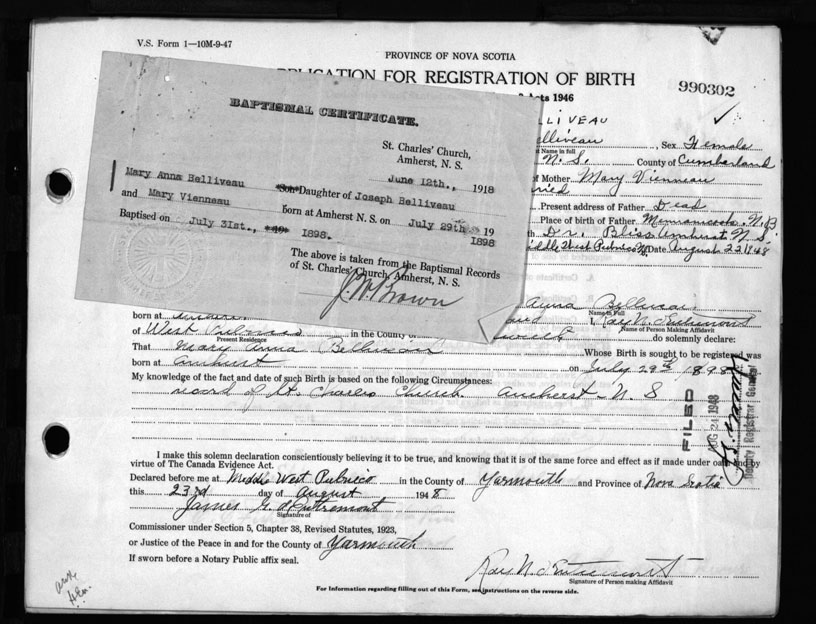 V.S. Form 1—10M-9-47
PROVINCE OF NOVA SCOTIA
APPLICATION FOR REGISTRATION OF BIRTH
990302
Acts 1946
BAPTISMAL CERTIFICATE.
St. Charles' Church,
Amherst, N. S.
June 12th., 1918
Mary Anna Belliveau Son Daughter of Joseph Belliveau
and Mary Vienneau born at Amherst N. S. on July 29th 19
1898
Baptised on July 31st., 1898.
The above is taken from the Baptismal Records
of St. Charles' Church, Amherst, N. S.
J. W. Brown
LLIVEAU
elliveau, Sex Female
Name in full
N. S. County of Cumberland
of Mother Mary Vienneau
ried
Present address of Father Dead
Place of birth of Father Memramcook, N.B
Dr. Bliss Amherst N. S.
iddle West Pubnico N. Date August 23 1948
Anna Belliveau
Name in Full
born at
I, Ray N.
Name of Person Making Affidavit
of West Pubnico in the County of do solemnly declare:
Present Residence
That Mary Anna Belliveau Whose Birth is sought to be registered was
born at Amherst on July 29th 1898
My knowledge of the fact and date of such Birth is based on the following Circumstances:
record of St. Charles Church. Amherst - N. S
FILED
AUG 24 1948
Deputy Registrar General
I make this solemn declaration conscientiously believing it to be true, and knowing that it is of the same force and effect as if made under oath and by
virtue of The Canada Evidence Act.
Declared before me at Middle West Pubnico in the County of Yarmouth and Province of Nova Scotia
this 23rd day of August 1948
James E. d'Entremont
Signature of
Commissioner under Section 5, Chapter 38, Revised Statutes, 1923,
or Justice of the Peace in and for the County of Yarmouth
If sworn before a Notary Public affix seal.
Ray N. d'Entremont
Signature of Person making Affidavit
For Information regarding filling out of this Form, see instructions on the reverse side.